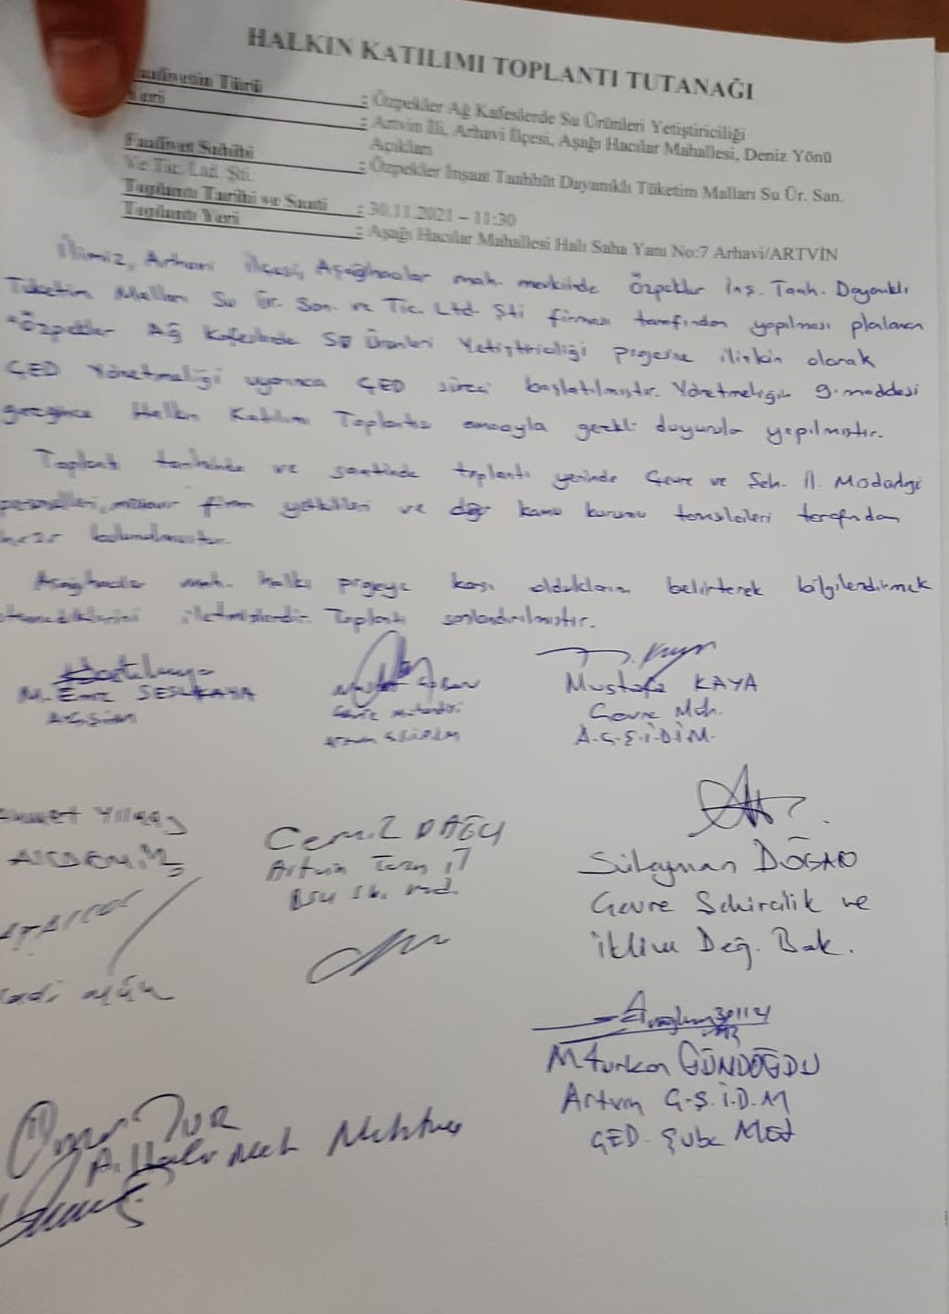 HALKIN KATILIMI TOPLANTI TUTANAĞI
Faaliyetin Türü : Özpekler Ağ Kafeslerde Su Ürünleri Yetiştiriciliği
Yeri : Artvin İli, Arhavi İlçesi, Aşağı Hacılar Mahallesi, Deniz Yönü
Açıkları
Faaliyet Sahibi : Özpekler İnşaat Taahhüt Dayanıklı Tüketim Malları Su Ür. San.
Ve Tic. Ltd. Şti.
Toplantı Tarihi ve Saati : 30.11.2021 – 11:30
Toplantı Yeri : Aşağı Hacılar Mahallesi Halı Saha Yanı No:7 Arhavi/ARTVİN
İlimiz, Arhavi ilçesi, Aşağıhacılar mah. mevkiinde Özpekler İnş. Taah. Dayanıklı
Tüketim Malları Su Ür. San. ve Tic. Ltd. Şti firması tarafından yapılması planlanan
"Özpekler Ağ Kafeslerde Su Ürünleri Yetiştiriciliği projesine ilişkin olarak
ÇED Yönetmeliği uyarınca ÇED süreci başlatılmıştır. Yönetmeliğin 9. maddesi
gereğince Halkın Katılımı Toplantısı amacıyla gerekli duyurular yapılmıştır.
Toplantı tarihinde ve saatinde toplantı yerinde Çevre ve Şeh. İl. Müdürlüğü
personelleri, firma yetkilileri ve diğer kamu kurumu temsilcileri tarafından
hazır bulunulmuştur.
Aşağıhacılar mah. halkı projeye karşı olduklarını belirterek bilgilendirmek
istemediklerini iletmişlerdir. Toplantı sonlandırılmıştır.
M. Emre
Mustafa KAYA
Çevre Müh.
A.Ç.Ş.İ.D.İ.M.
Ahmet Yılmaz
Cemil DAĞLI
Artvin Tarım İl
Süleyman DOĞAN
Çevre Şehircilik ve
İklim Değ. Bak.
M Furkan GÜNDOĞDU
Artvin Ç.Ş.İ.D.M
ÇED. Şube Müd
Mah Muhtarı